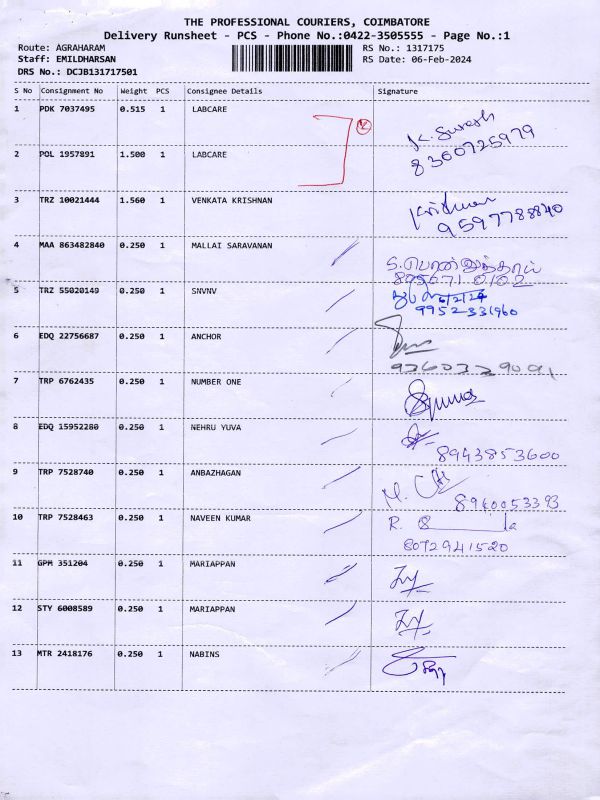 THE PROFESSIONAL COURIERS, COIMBATORE
Delivery Runsheet - PCS - Phone No.:0422-3505555 - Page No.:1
Route: AGRAHARAM RS No.: 1317175
Staff: EMILDHARSAN RS Date: 06-Feb-2024
DRS No.: DCJB131717501
S No Consignment No Weight PCS Consignee Details Signature
1 PDK 7037495 0.515 1 LABCARE
K. Suresh
8300725979
2 POL 1957891 1.500 1 LABCARE
3 TRZ 10021444 1.560 1 VENKATA KRISHNAN
Krishnan
9597788840
4 MAA 863482840 0.250 1 MALLAI SARAVANAN
5 TRZ 55020149 0.250 1 SNVNV
6/2/24
9952331960
6 EDQ 22756687 0.250 1 ANCHOR
9360339091
7 TRP 6762435 0.250 1 NUMBER ONE
8 EDQ 15952280 0.250 1 NEHRU YUVA
8943853600
9 TRP 7528740 0.250 1 ANBAZHAGAN
8960053393
10 TRP 7528463 0.250 1 NAVEEN KUMAR
8072941520
11 GPM 351204 0.250 1 MARIAPPAN
12 STY 6008589 0.250 1 MARIAPPAN
13 MTR 2418176 0.250 1 NABINS